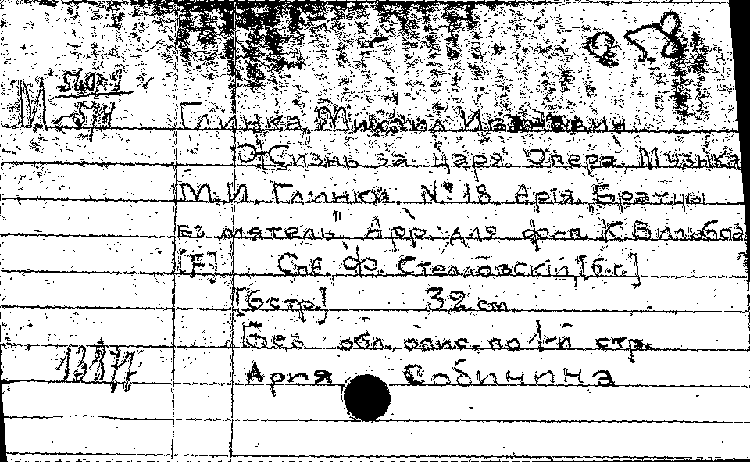 М
Глинка, Михаил Иванович
Жизнь за царя. Опера. Музыка
М.И. Глинки. № 18. Арія. „Братцы
въ мятель". Арр. для фп. К. Вильбоа
[F] Спб. Ф. Стелловскій, [б.г.]
[6стр.] 32 cm.
Без обл., опис. по 1-й стр.
13877
Ария Собинина